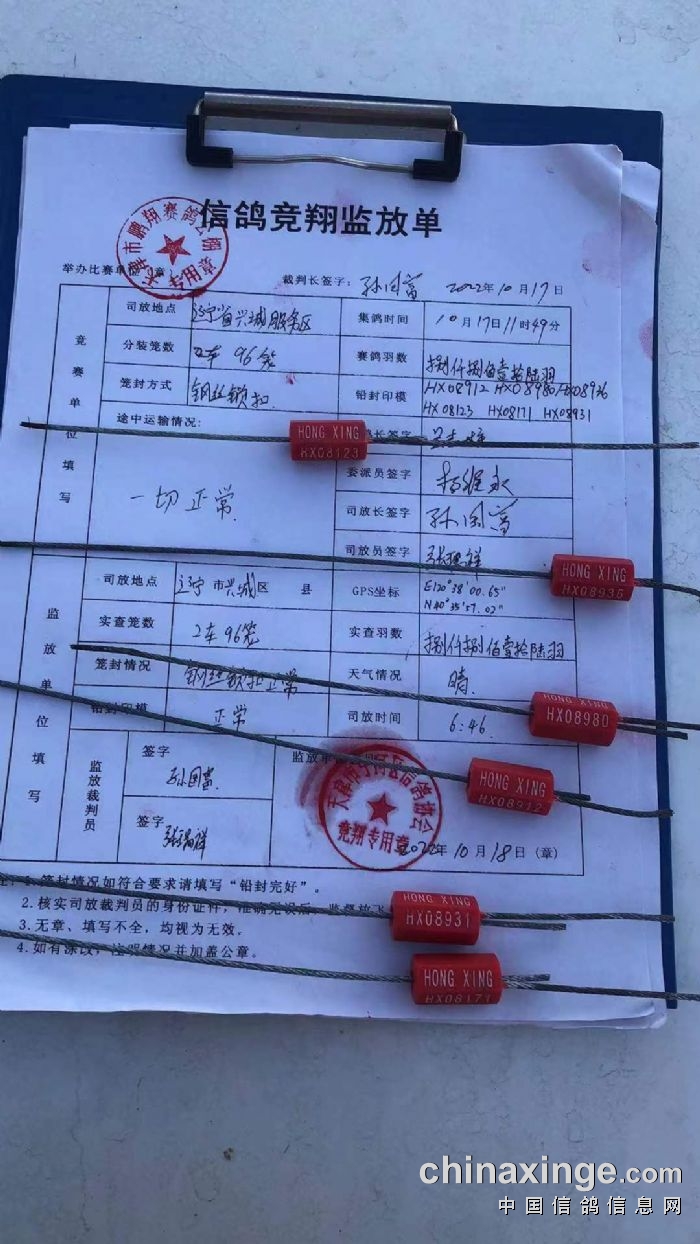 信鸽竞翔监放单
天津市鹏翔赛鸽公棚
专用章
举办比赛单位 章 裁判长签字: 孙国富 2022年10月17日
竞赛单位填写
司放地点 辽宁省兴城服务区 集鸽时间 10月17日11时49分
分装笼数 2车96笼 赛鸽羽数 捌仟捌佰壹拾陆羽
笼封方式 钢丝锁扣 铅封印模 HX08912 HX08980 HX08936
HX08123 HX08171 HX08931
途中运输情况: 长签字
HONG XING
HX08123
委派员签字
一切正常 司放长签字 孙国富
司放员签字
HONG XING
HX08935
监放单位填写
司放地点 辽宁市兴城区 县 GPS坐标 E120°38'00.65"
N40°35'57.02"
实查笼数 2车96笼 实查羽数 捌仟捌佰壹拾陆羽
笼封情况 钢丝锁扣正常 天气情况 晴
HONG XING
HX08980
铅封印模 正常 司放时间 6:46
HONG XING
HX08912
监放裁判员 签字 孙国富 监放单
签字
天津市宁河区信鸽协会
竞翔专用章
2022年10月18日(章)
1.笼封情况如符合要求请填写“铅封完好”。
2.核实司放裁判员的身份证件,准确无误后,监督放飞
3.无章、填写不全,均视为无效。
4.如有涂改,注明情况并加盖公章。
HONG XING
HX08931
HONG XING
HX08171
chinaxinge.com
中国信鸽信息网